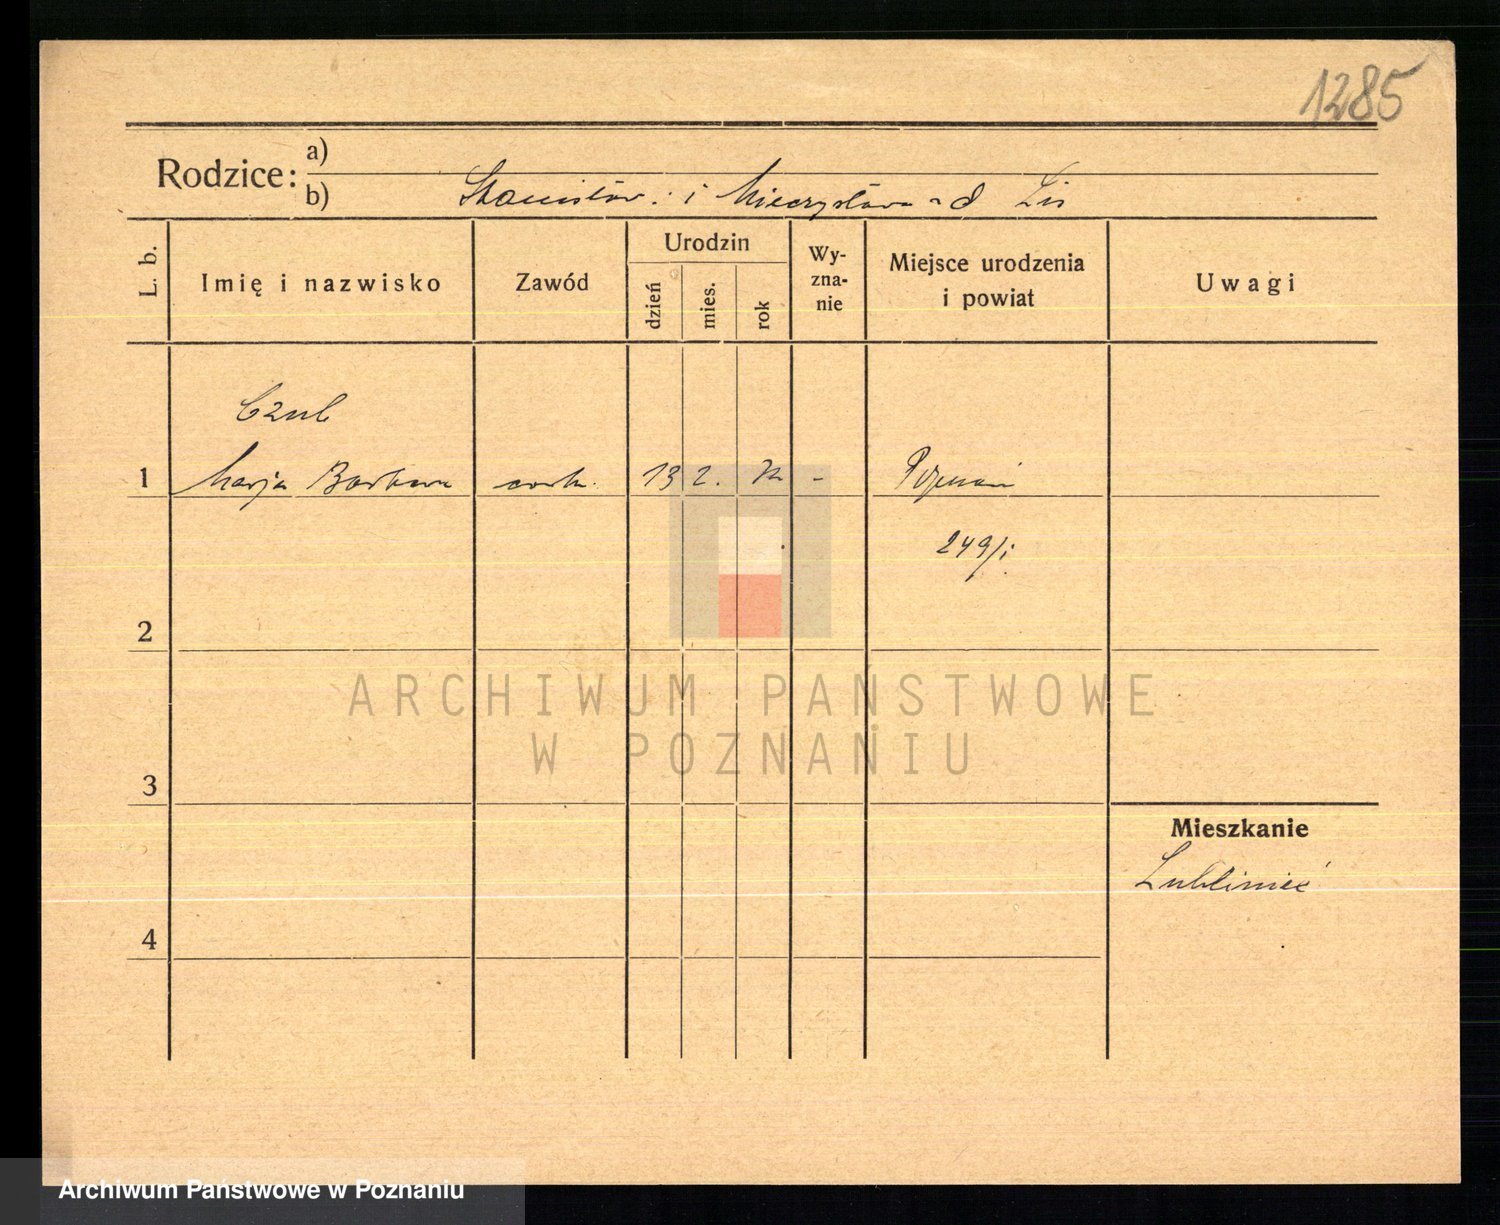 1285
Rodzice: a)
b) Stanisław i Mieczysława Lis
L. b. Imię i nazwisko Zawód Urodzin dzień mies. rok Wy-zna-nie Miejsce urodzenia i powiat Uwagi
Czub
1 Marja Barbara córka 13 2. - Poznań
249/i
2
ARCHIWUM PAŃSTWOWE
W POZNANIU
3
Mieszkanie
Lubliniec
4
Archiwum Państwowe w Poznaniu